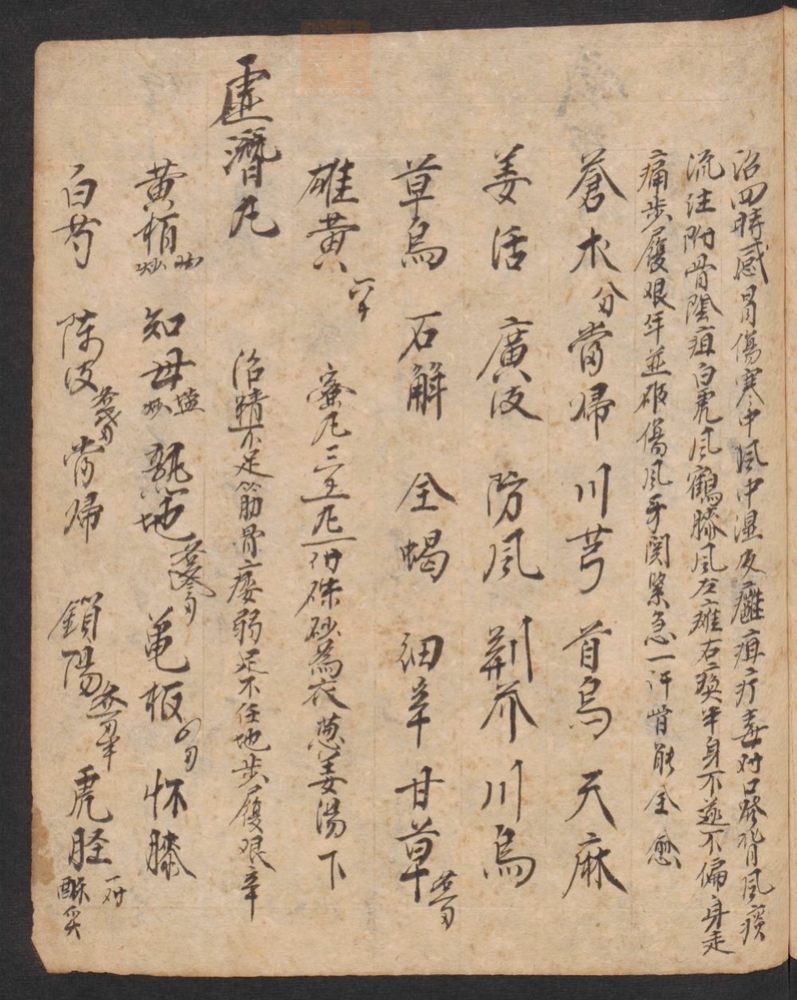 治四時感冒傷寒中風中濕及癰疽疔毒對口發背風痰
流注附骨陰疽白虎風鶴膝風左癱右瘓半身不遂不偏身走
痛步履艱辛並破傷風牙関緊急一汗皆能全愈
蒼朮 分 當帰 川芎 首烏 天麻
姜活 廣皮 防風 荆芥 川烏
草烏 石解 全蝎 細辛 甘草
雄黃 蜜丸三玉丸 硃砂為衣葱姜湯下
虛潛丸 治精不足筋骨痿弱足不任地步履艱辛
黃栢 炒 知母 塩炒 熟地 龟板 怀膝
白芍 陈皮 當帰 鎖陽 虎胫 酥炙